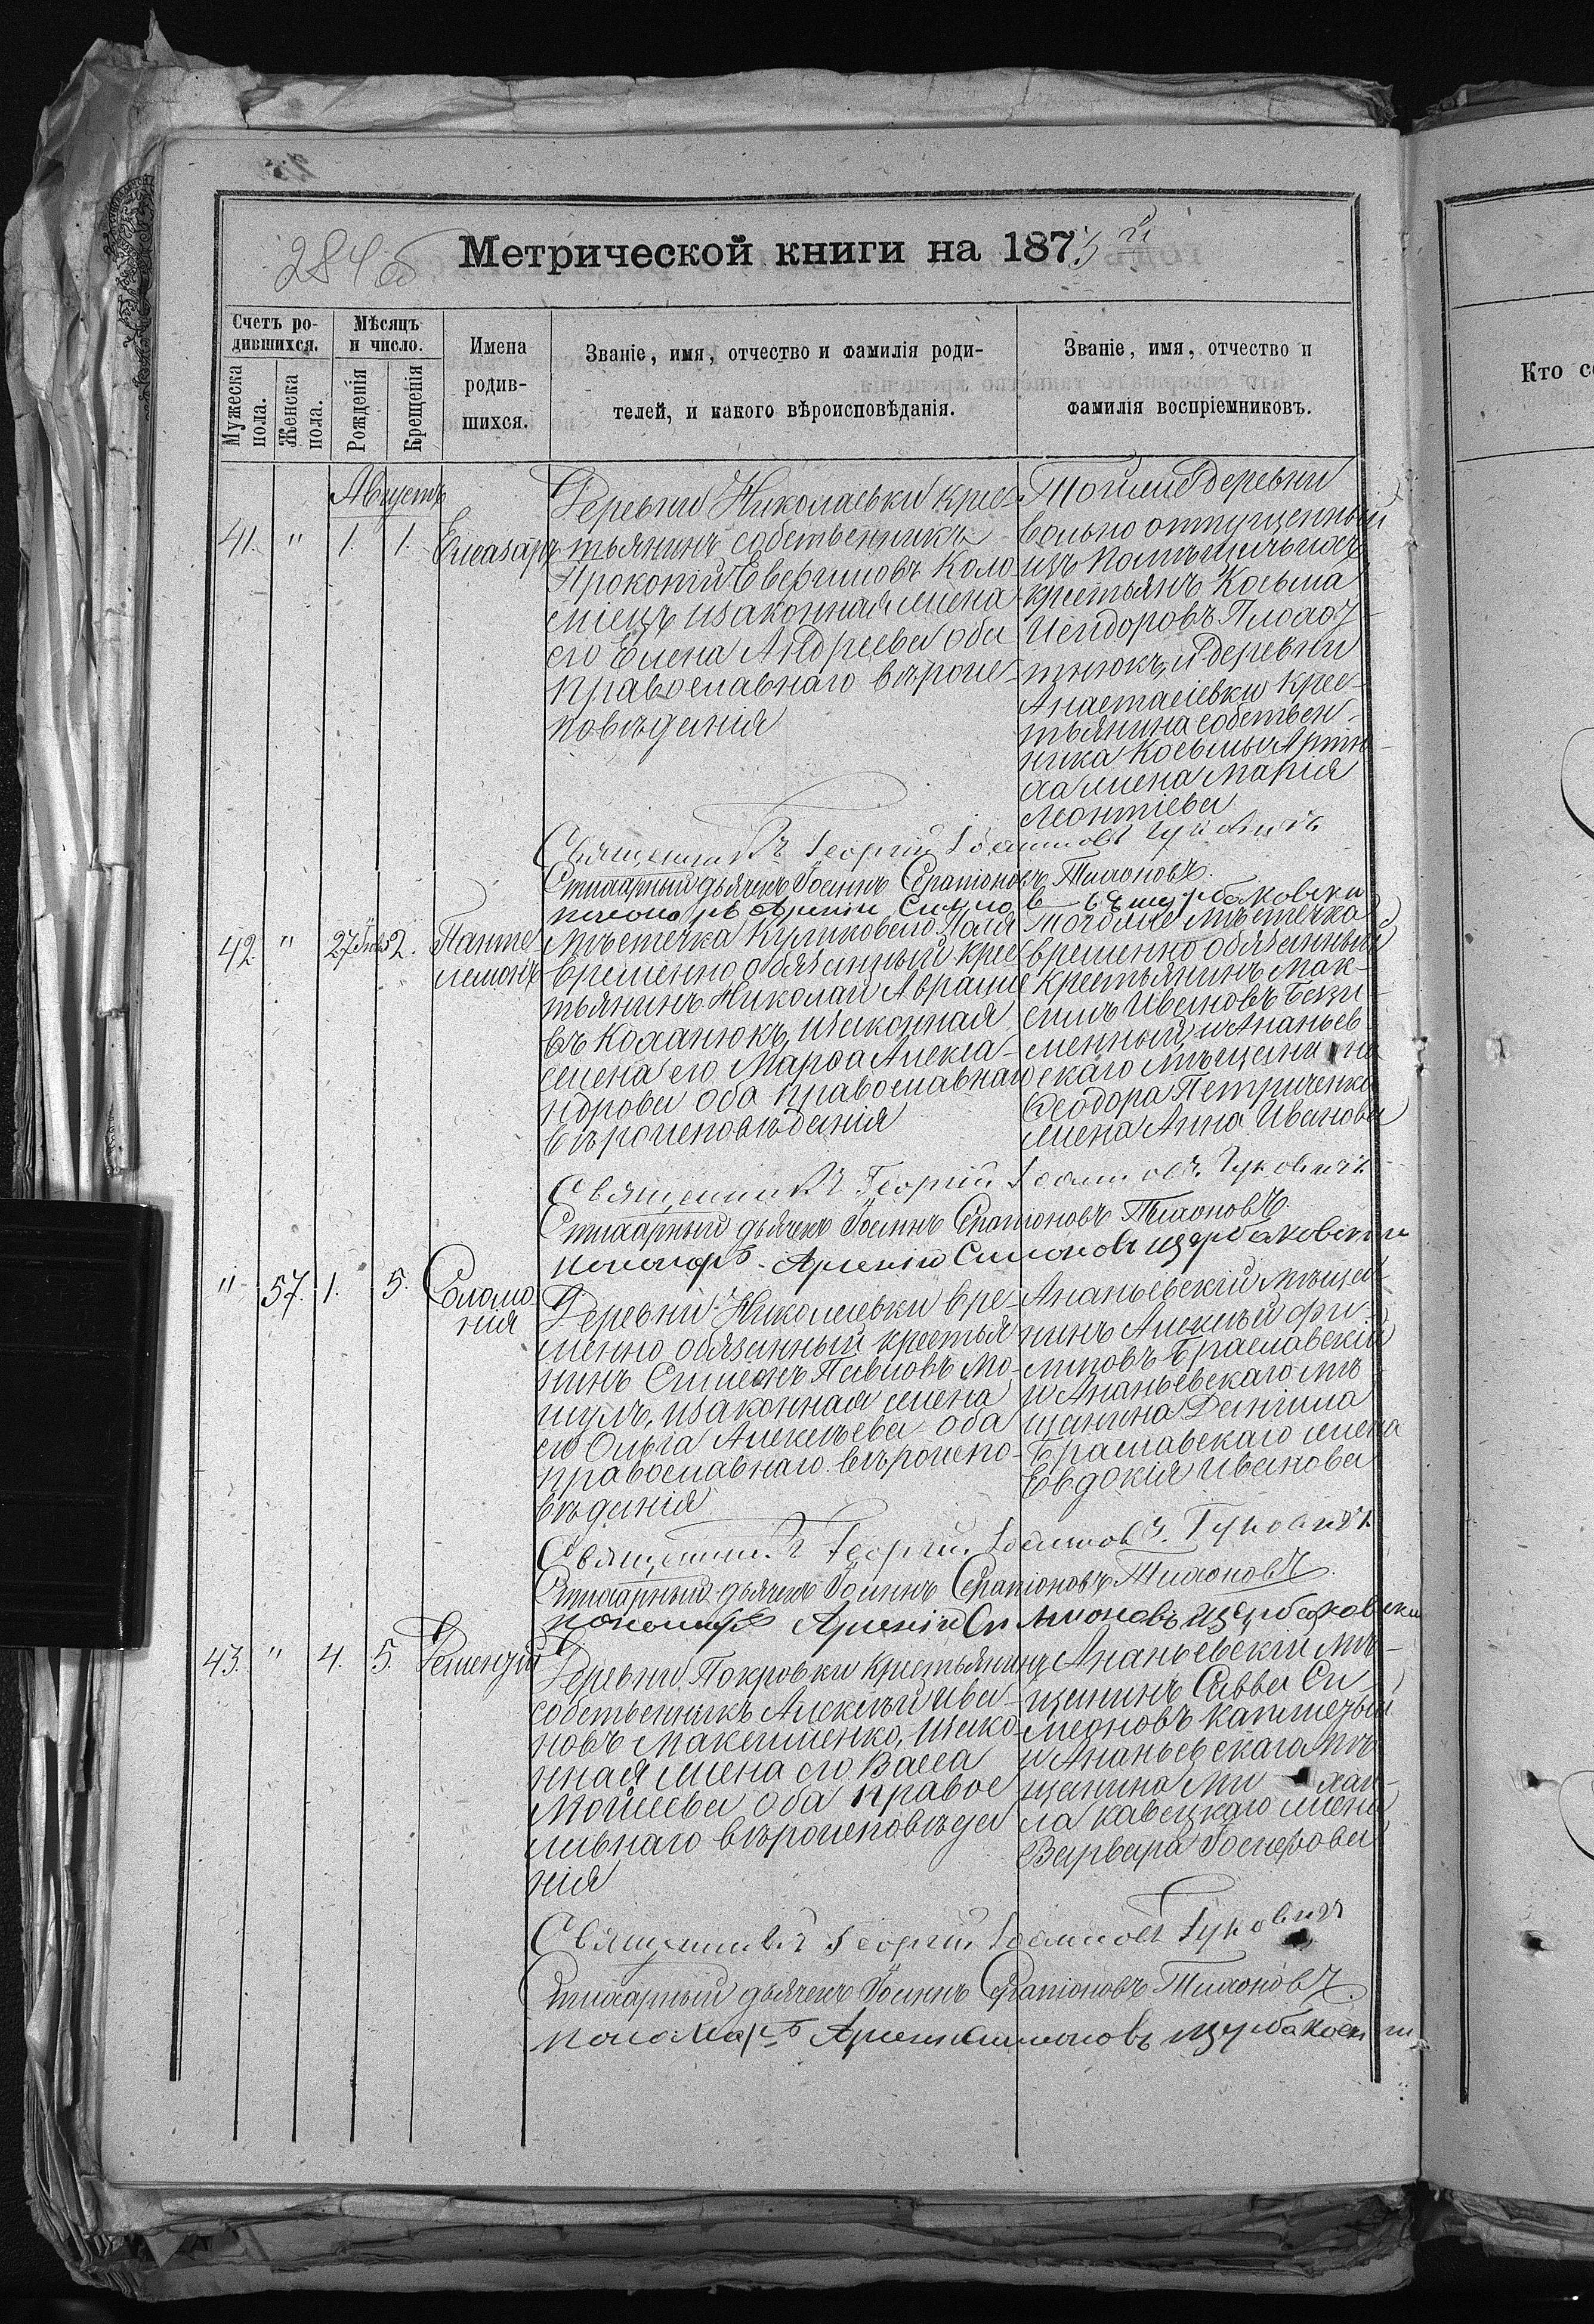 284 об
Метрической книги на 1873 й
Счетъ ро-
дившихся.
Мѣсяцъ
и число.
Имена
родив-
шихся.
Званіе, имя, отчество и фамилія роди-
телей, и какого вѣроисповѣданія.
Званіе, имя, отчество и
фамилія воспріемниковъ.
Мужеска
пола.
Женска
пола.
Рожденія
Крещенія
Кто с
Августъ
41. " 1. 1. Елеазаръ
Деревни Николаевки крес-
тьянинъ собственникъ
Прокопій Евфимовъ Коло
міецъ и законная жена
его Елена Андреева оба
православнаго вѣроис-
повѣданія
Тойже деревни
вольно отпущенный
изъ помѣщичьихъ
крестьянъ Косьма
Исидоровъ
тнюкъ, и деревни
Анастасіевки крес-
тьянина собствен-
ника Косьмы
ха жена Марія
Леонтіева
Священникъ Георгій Іоанновъ Гуковичъ
Стихарный дьячекъ Іоаннъ Серапіоновъ Тихоновъ.
пономарь Арсеній Симоновъ Щербаковскій
42. " 27 Іюля 2. Панте
леимонъ
Мѣстечка Куликового Поля
временно обязанный крес
тьянинъ Николай Аврамо
въ Коханюкъ, и законная
жена его Марфа Алекса-
ндрова оба православнаго
вѣроисповѣданія
Тогоже мѣстечка
временно обязанный
крестьянинъ Мак-
симъ Ивановъ Бези-
менный, и Ананьев-
скаго мѣщанина
Феодора Петриченка
жена Анна Иванова
Священникъ Георгій Іоанновъ Гуковичъ
Стихарный дьячекъ Іоаннъ Серапіоновъ Тихоновъ.
пономарь Арсеній Симоновъ Щербаковскій
" 57. 1. 5. Соломо
нія
Деревни Николаевки вре-
менно обязанный крестья
нинъ Симеонъ Павловъ Мо-
шулъ, и законная жена
его Ольга Алексѣева оба
православнаго вѣроиспо-
вѣданія
Ананьевскій мѣща-
нинъ Алексѣй Фи-
липовъ Браславскій
и Ананьевскаго мѣ
щанина Даніила
Браславскаго жена
Евдокія Иванова
Священникъ Георгій Іоанновъ Гуковичъ
Стихарный дьячекъ Іоаннъ Серапіоновъ Тихоновъ.
пономарь Арсеній Симоновъ Щербаковскій
43. " 4. 5. Гелензій
Деревни Покровки крестьянинъ
собственникъ Алексѣй Ива-
новъ Максименко, и зако-
нная жена его Васса
Мойсеева оба право
славнаго вѣроисповѣда
нія
Ананьевскій мѣ-
щанинъ Савва Си-
меоновъ
и Ананьевскаго мѣ
щанина Ми хаи-
ла Кавецкаго жена
Варвара Іосифова
Священникъ Георгій Іоанновъ Гуковичъ
Стихарный дьячекъ Іоаннъ Серапіоновъ Тихоновъ.
пономарь Арсеній Симоновъ Щербаковскій